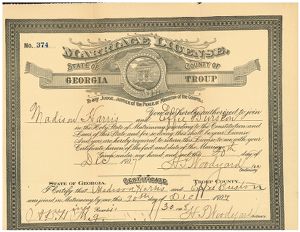 No. 374
MARRIAGE LICENSE.
STATE OF COUNTY OF
GEORGIA TROUP
To any Judge, Justice of the Peace or Minister of the Gospel:
You are hereby authorized to join
Madison Harris and Effie Burston
in the Holy State of Matrimony according to the Constitution and
Laws of this State and for so doing this shall be your License
And you are hereby required to return this License to me with your
Certificate hereon of the fact and date of the Marriage
Given under my hand and seal this 20th day of
Dec
CERTIFICATE
STATE OF GEORGIA. TROUP COUNTY.
I Certify that Madison Harris and Effie Burston
joined in Matrimony by me this 20th day of Dec
Recorded